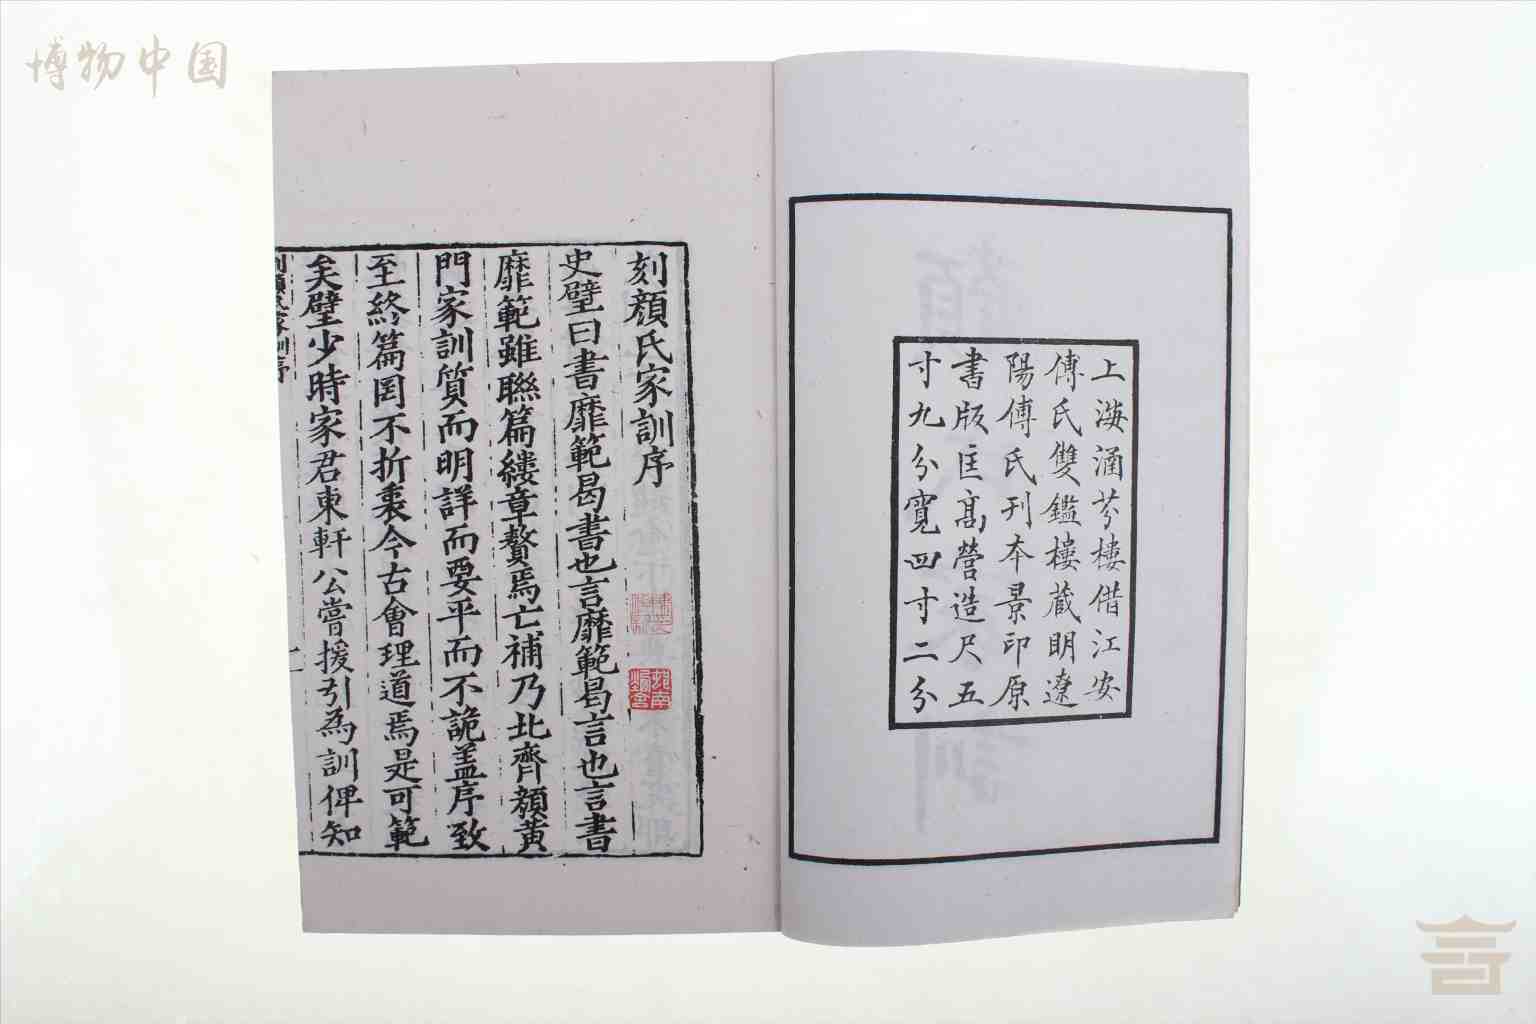 博物中国
上海涵芬樓借江安
傅氏雙鑑樓藏明遼
陽傅氏刊本景印原
書版匡高營造尺五
寸九分寬四寸二分
刻顏氏家訓序
史壁曰書靡範曷書也言靡範曷言也言書
靡範雖聯篇縷章贅焉亡補乃北齊顏黃
門家訓質而明詳而要平而不詭蓋序致
至終篇罔不折衷今古會理道焉是可範
矣壁少時家君東軒公嘗援引為訓俾知